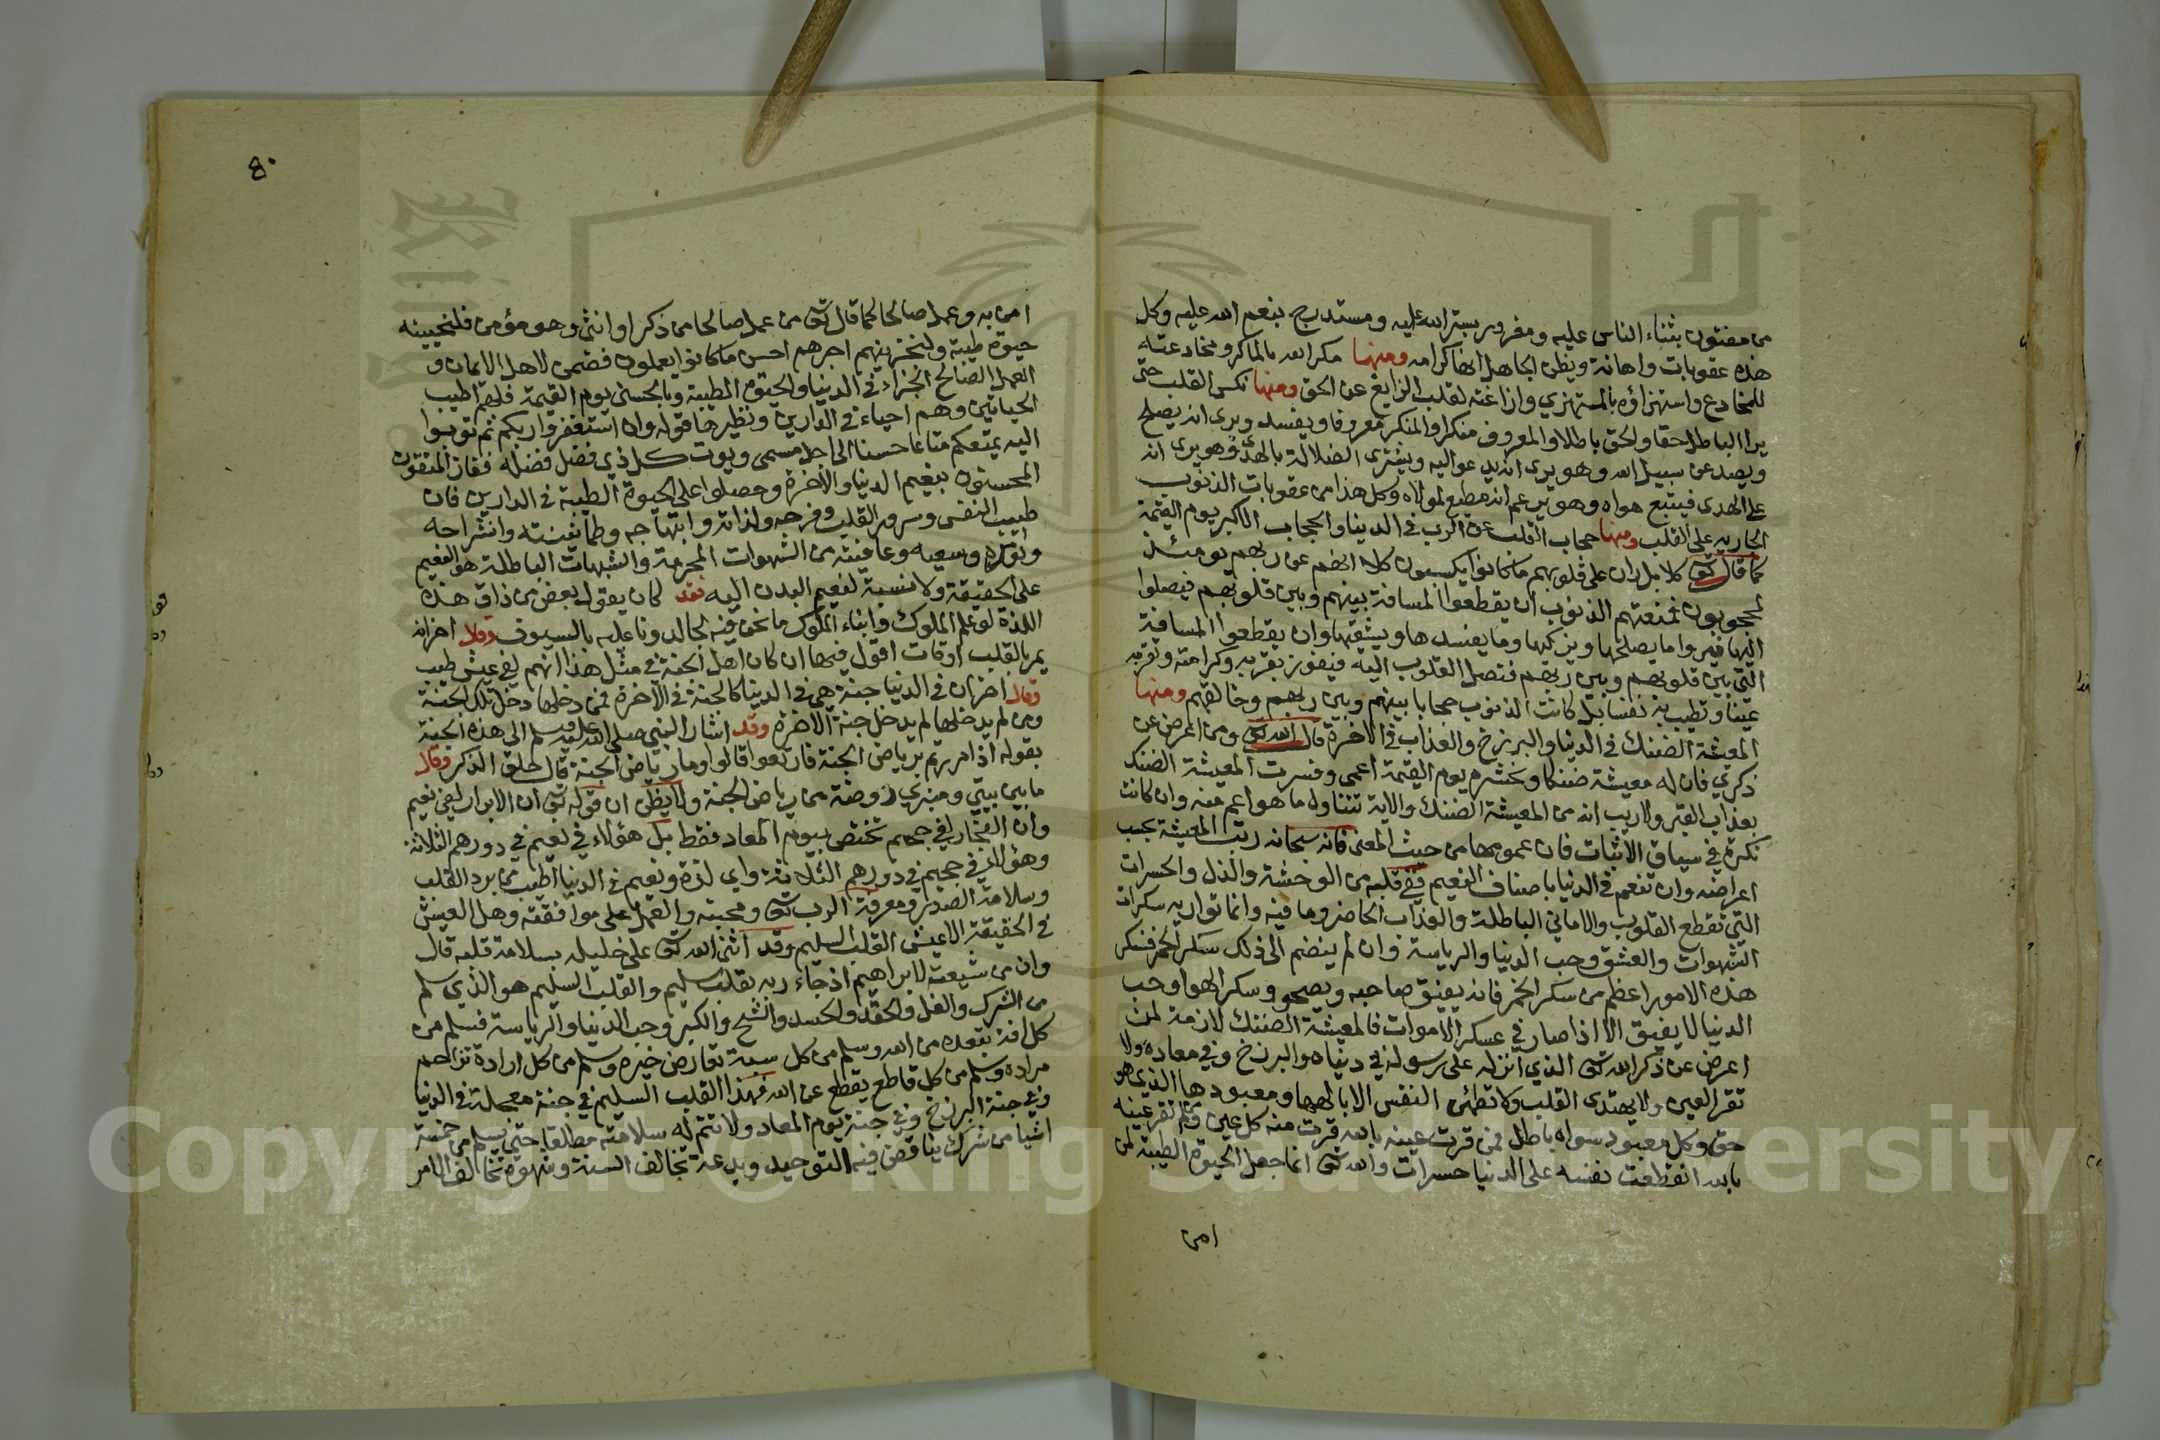 من مفتون بثناء الناس عليه ومغرور بستر الله عليه ومستدرج بنعم الله عليه وكل
هذه عقوبات واهانة ويظن الجاهل انها كرامه ومنها مكر الله بالماكر ومخادعته
للمخادع واستهزاؤه بالمستهزي وازاغته لقلب الزايغ عن الحق ومنها نكس القلب حتى
يرا الباطل حقا والحق باطلا والمعروف منكرا والمنكر معروفا ويفسد ويرى انه يصلح
ويصد عن سبيل الله وهو يرى انه يدعو اليه ويشترى الضلالة بالهدى وهو يرى انه
على الهدى فيتبع هواه وهو يزعم انه مطيع لمولاه وكل هذا من عقوبات الذنوب
الجاريه على القلب ومنها حجاب القلب عن الرب في الدنيا والحجاب الاكبر يوم القيمة
كما قال تعالى كلا بل ران على قلوبهم ما كانوا يكسبون كلا انهم عن ربهم يومئذ
لمحجوبون فمنعتهم الذنوب ان يقطعوا المسافة بينهم وبين قلوبهم فيصلوا
اليها فيروا ما يصلحها ويزكيها وما يفسدها ويشقيها وان يقطعوا المسافة
التي بين قلوبهم وبين ربهم فتصل القلوب اليه فيفوز بقربه وكرامته وتقر به
عينا وتطيب به نفسا بل كانت الذنوب حجابا بينهم وبين ربهم وخالقهم ومنها
المعيشة الضنك في الدنيا والبرزخ والعذاب في الاخرة قال الله تعالى ومن اعرض عن
ذكري فان له معيشة ضنكا ونحشره يوم القيمة اعمى وفسرت المعيشة الضنك
بعذاب القبر ولا ريب انه من المعيشة الضنك والاية تتناول ما هو اعم منه وان كانت
نكرة في سياق الاثبات فان عمومها من حيث المعنى فانه سبحانه رتب المعيشة بحسب
اعراضه وان تنعم في الدنيا باصناف النعيم ففي قلبه من الوحشة والذل والحسرات
التي تقطع القلوب والاماني الباطلة والعذاب الحاضر وما فيه وانما تواريه سكرات
الشهوات والعشق وحب الدنيا والرياسة وان لم ينضم الى ذلك سكر الخمر فسكر
هذه الامور اعظم من سكر الخمر فانه يفيق صاحبه ويصحو وسكر الهوا وحب
الدنيا لا يفيق الا اذا صار في عسكر الاموات فالمعيشة الضنك لازمة لمن
اعرض عن ذكر الله تعالى الذي انزله على رسوله في دنياه والبرزخ وفي معاده ولا
تقر العين ولا يهتدى القلب ولا تطمئن النفس الا بالهها ومعبودها الذي هو
حق وكل معبود سواه باطل فمن قرت عينه بالله قرت منه كل عين ومن لم تقر عينه
بالله انقطعت نفسه على الدنيا حسرات والله تعالى انما جعل الحيوة الطيبة لمن
امن
٤٠
امن به وعمل صالحا كما قال تعالى من عمل صالحا من ذكر او انثى وهو مؤمن فلنحيينه
حيوة طيبة ولنجزينهم اجرهم احسن ما كانوا يعملون فضمن لاهل الايمان و
العمل الصالح الجزاء في الدنيا والحيوة الطيبة وبالحسنى يوم القيمة فلهم اطيب
الحياتين وهم احياء في الدارين ونظيرها قوله وان استغفروا ربكم ثم توبوا
اليه يمتعكم متاعا حسنا الى اجل مسمى ويوت كل ذي فضل فضله ففاز المتقون
المحسنون بنعيم الدنيا والاخرة وحصلوا على الحيوة الطيبة في الدارين فان
طيب النفس وسرور القلب وفرحه ولذاته وابتهاجه وطمانينته وانشراحه
ونوره وسعيه وعافيته من الشهوات المحرمة والشبهات الباطلة هو النعيم
على الحقيقة ولا نسبة لنعيم البدن اليه فقد كان يقول بعض من ذاق هذه
اللذة لو علم الملوك وابناء الملوك ما نحن فيه لجالدونا عليه بالسيوف وقال اخر انه
يمر بالقلب اوقات اقول فيها ان كان اهل الجنة في مثل هذا انهم لفي عيش طيب
وقال اخر ان في الدنيا جنة هي في الدنيا كالجنة في الاخرة فمن دخلها دخل تلك الجنة
ومن لم يدخلها لم يدخل جنة الاخرة وقد اشار النبي صلى الله عليه وسلم الى هذه الجنة
بقوله اذا مررتم برياض الجنة فارتعوا قالوا وما رياض الجنة قال حلق الذكر وقال
ما بين بيتي ومنبري روضة من رياض الجنة ولا يظن ان قوله تعالى ان الابرار لفي نعيم
وان الفجار لفي جحيم تختص بيوم المعاد فقط بل هؤلاء في نعيم في دورهم الثلاثة
وهؤلاء في جحيم في دورهم الثلاثة واي لذة ونعيم في الدنيا اطيب من برد القلب
وسلامة الصدر ومعرفة الرب تعالى ومحبته والعمل على موافقته وهل العيش
في الحقيقة الا عيش القلب السليم وقد اثنى الله تعالى على خليله بسلامة قلبه قال
وان من شيعته لابراهيم اذ جاء ربه بقلب سليم والقلب السليم هو الذي سلم
من الشرك والغل والحقد والحسد والشح والكبر وحب الدنيا والرياسة فسلم من
كل افة تبعده من الله وسلم من كل تعارض خبره وسلم من كل ارادة تزاحم
مراده وسلم من كل قاطع يقطع عن الله فهذا القلب السليم في جنة معجلة في الدنيا
وفي جنة البرزخ وفي جنة يوم المعاد ولا تتم له سلامته مطلقا حتى يسلم من خمسة
اشيا من شرك يناقض فيه التوحيد وبدعة تخالف السنة وشهوة تخالف الامر
Copyright © King Saud University